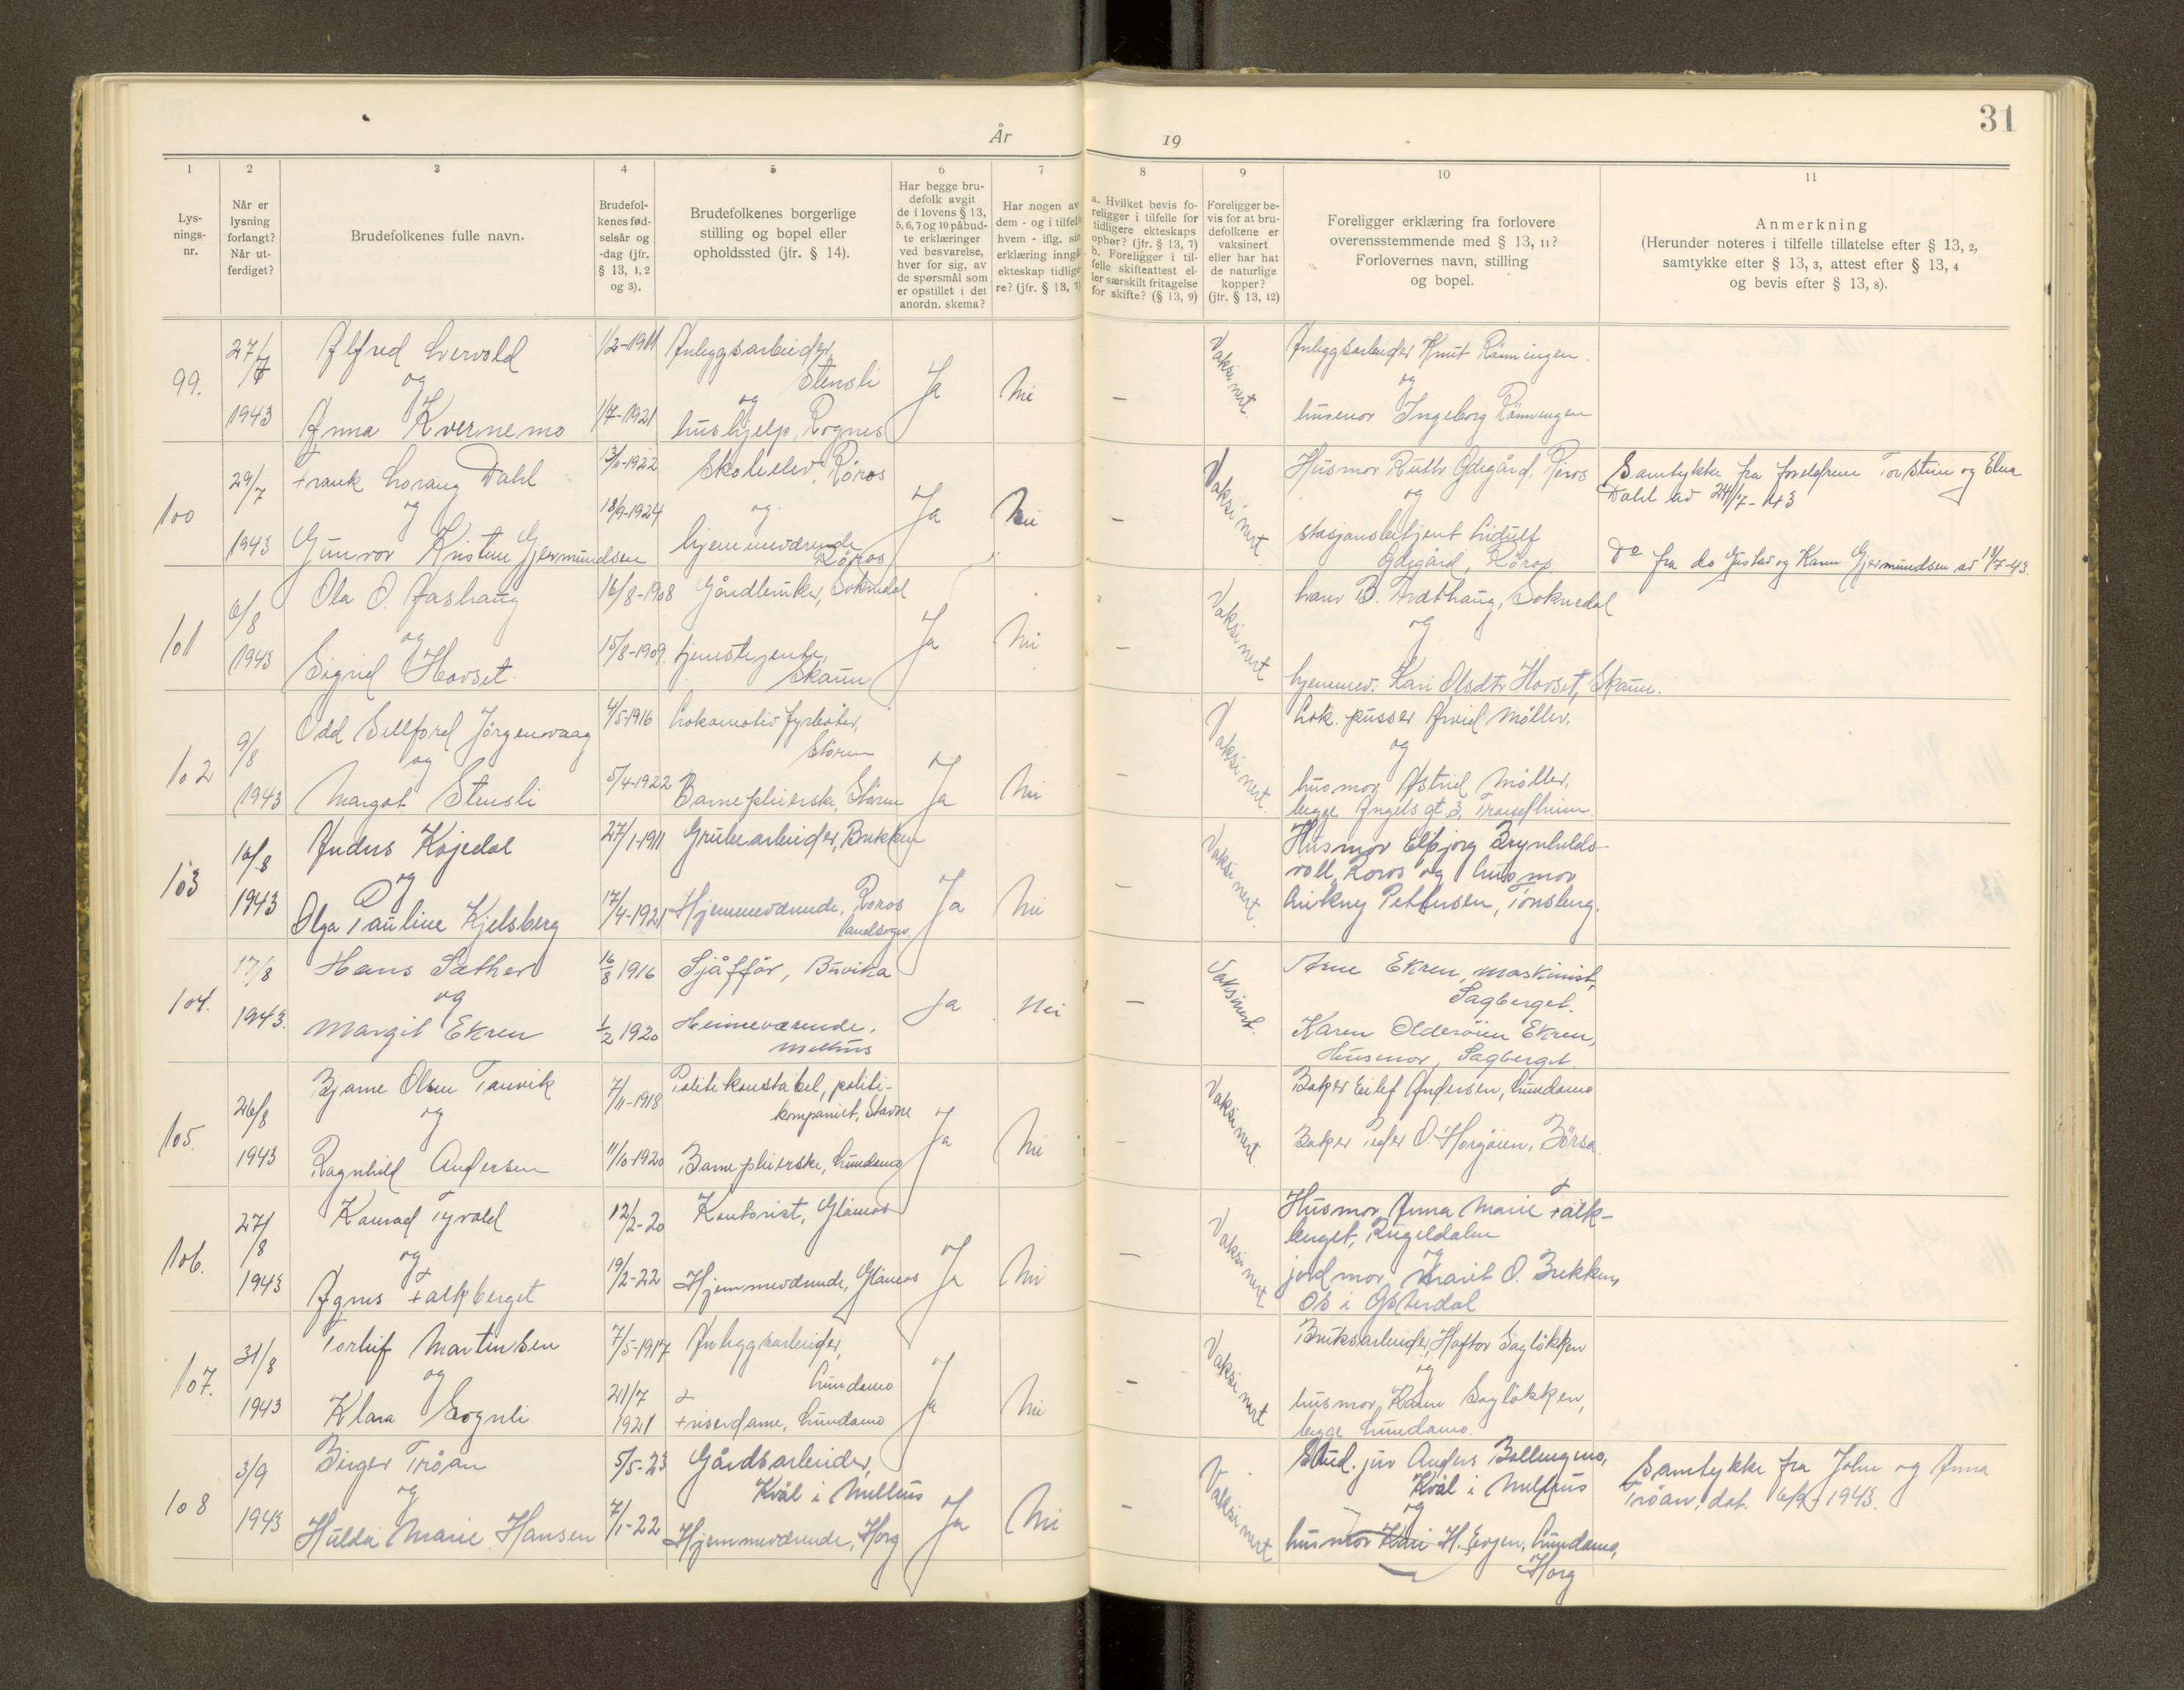 31
År 19
1 2 3 4 5 6 7 8 9 10 11
Lys-
nings-
nr.
Når er
lysning
forlangt?
Når ut-
ferdiget?
Brudefolkenes fulle navn.
Brudefol-
kenes fød-
selsår og
-dag (jfr.
§ 13, 1, 2
og 3).
Brudefolkenes borgerlige
stilling og bopel eller
opholdssted (jfr. § 14).
Har begge bru-
defolk avgit
de i lovens § 13,
5, 6, 7 og 10 påbud-
te erklæringer
ved besvarelse,
hver for sig, av
de spørsmål som
er opstillet i det
anordn. skema?
Har nogen av
dem - og i tilfelle
hvem - iflg. sin
erklæring inngå
ekteskap tidlige
re? (jfr. § 13, 7)
a. Hvilket bevis fo-
religger i tilfelle for
tidligere ekteskaps
ophør? (jfr. § 13, 7)
b. Foreligger i til-
felle skifteattest el-
ler særskilt fritagelse
for skifte? (§ 13, 9)
Foreligger be-
vis for at bru-
defolkene er
vaksinert
eller har hat
de naturlige
kopper?
(jfr. § 13, 12)
Foreligger erklæring fra forlovere
overensstemmende med § 13, 11?
Forlovernes navn, stilling
og bopel.
Anmerkning
(Herunder noteres i tilfelle tillatelse efter § 13, 2,
samtykke efter § 13, 3, attest efter § 13, 4
og bevis efter § 13, 8).
99.
27/7
1943
Alfred
og
Anna Kvernemo
1/2-1911
1/7-1921
Anleggsarbeider,
Stensli
og
hushjelp, Rognes
Ja
Nei
—
Vaksinert.
Anleggsarbeider Knut Rønningen.
og
husmor Ingeborg Rønningen
100
29/7
1943
Frank Lorang Dahl
og
Gunvor Kristine Gjermundsen
13/11-1922
18/9-1924
Skoleelev, Røros
og
hjemmeværende
Røros
Ja
Nei
—
Vaksinert
Husmor Ruth Ødegård, Røros
og
stasjonsbetjent Lidulf
Ødegård, Røros
Samtykke fra foreldrene Torstein og Elna
Dahl av 24/7-43
Do fra do Gustav og Karen Gjermundsen av 19/7-43.
101
6/8
1943
Ola O. Aashaug
og
Sigrid Hovset
16/8-1908
15/8-1909.
Gårdbruker, Soknedal
tjenestejente,
Skaun
Ja
Nei
—
Vaksinert
B. Soknedal
og
hjemmev. Kari Olsdtr Hovset, Skaun.
102
9/8
1943
Odd Sellford Jørgenvaag
og
Margot Stensli
4/5-1916
5/4-1922
Lokomotiv fyrbøter,
Støren
Barnepleierske, Støren
Ja
Nei
—
Vaksinert.
Lok. pusser Arvid Møller,
og
husmor Astrid Møller,
begge Angels gt 3, Trondheim.
103
16/8
1943
Anders Kojedal
og
Olga Pauline Kjelsberg
27/1-1911
17/4-1921
Grubearbeider, Brekken
Hjemmeværende, Røros
landsogn.
Ja
Nei
—
Vaksinert.
Husmor Elbjørg Brynhilds-
voll, Røros og husmor
Pettersen, Tønsberg.
104.
17/8
1943.
Hans Sæther
og
Margit Ekren
16/8 1916
1/2 1920
Sjåffør, Buvika
Heimeværende,
Melhus
Ja
Nei
—
Vaksinert.
Arne Ekren, maskinist,
Sagberget.
Karen Olderøien Ekren,
Husmor, Sagberget.
105.
26/8
1943
Bjarne Olsen Tanvik
og
Ragnhild Andersen
7/11-1918
11/10-1920
Politikonstabel, politi-
kompaniet, Stavne
Barnepleierske, Lundamo
Ja
Nei
—
Vaksinert.
Baker Eilef Andersen, Lundamo
Baker Peder O. Horgøien, Børsa.
106.
27/8
1943
Konrad Tyvold
og
Agnes Falkberget
12/2-20
19/2-22
Kontorist, Glåmos
Hjemmeværende, Glåmos
Ja
Nei
—
Vaksinert
Husmor Anna Marie Falk-
berget, Rugeldalen
og
jordmor Marit O. Brekken,
Os i Østerdal
107.
31/8
1943
Torleif Martinsen
og
Klara Sognli
7/5-1917
21/7
1921
Anleggsarbeider,
Lundamo
Friserdame, Lundamo
Ja
Nei
—
Vaksinert
Bruksarbeider, Haftor Sagløkken
og
husmor, Karen Sagløkken,
begge Lundamo.
108
3/9
1943
Birger Trøan
og
Hulda Marie Hansen
5/5-23
7/1-22
Gårdsarbeider,
Kvål i Melhus
Hjemmeværende, Horg
Ja
Nei
—
Vaksinert
Stud. jur Anders Bollengmo,
Kvål i Melhus
og
husmor Kari H. Evjen, Lundamo,
Horg
Samtykke fra John og Anna
Trøan, dat. 6/9-1943.